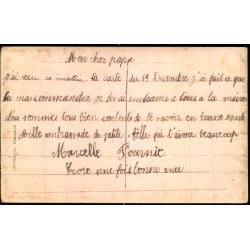 Mon cher papa
J'ai reçu ce matin ta carte du 19 Decembre j'ai fait ce que
tu mas commander je les ai embrasser tous a la maison
Nous sommes tous bien contents de te savoir en bonne santé
Mille embrassade de ta petite fille qui t'aime beaucoup
Marcelle Fournie
Ecore une fois bonne anée